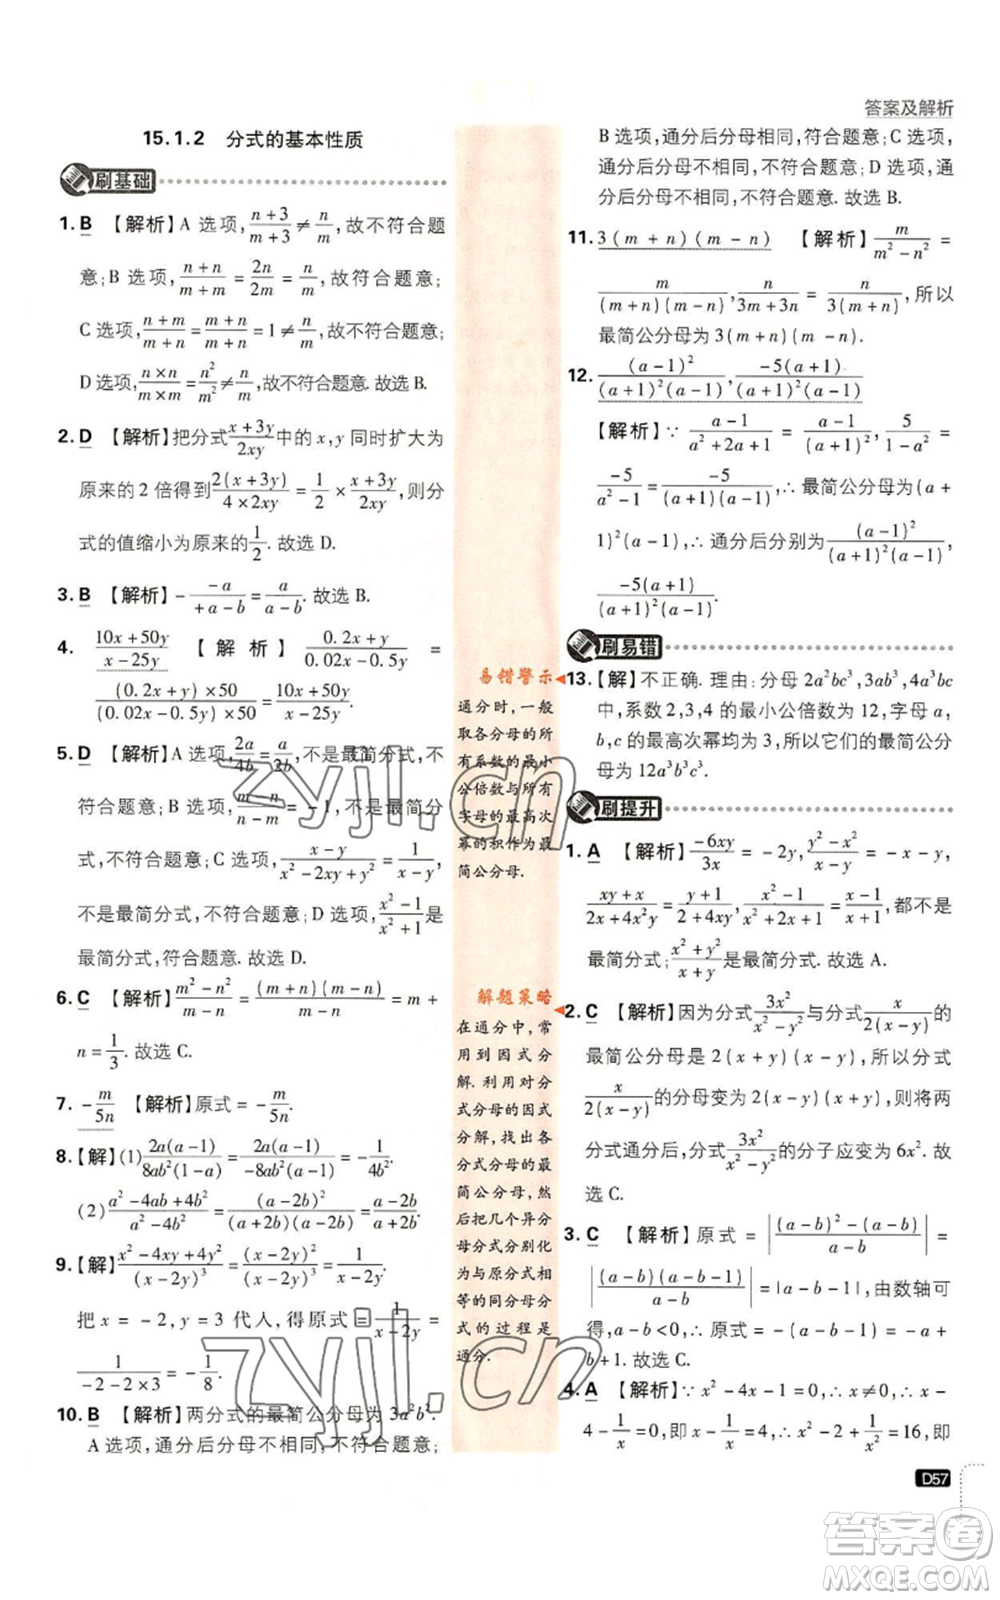 答案及解析
15.1.2 分式的基本性质
刷基础
1. B 【解析】A 选项,(n+3)/(m+3)≠n/m,故不符合题
意;B 选项,(n+n)/(m+m)=2n/2m=n/m,故符合题意;
C 选项,(n+m)/(m+n)=(m+n)/(m+n)=1≠n/m,故不符合题意;
D 选项,(n×n)/(m×m)=n²/m²≠n/m,故不符合题意.故选 B.
2. D 【解析】把分式(x+3y)/2xy中的 x,y 同时扩大为
原来的 2 倍得到2(x+3y)/(4×2xy)=1/2×(x+3y)/2xy,则分
式的值缩小为原来的1/2.故选 D.
3. B 【解析】-(-a)/(+a-b)=a/(a-b).故选 B.
4. (10x+50y)/(x-25y) 【解析】(0.2x+y)/(0.02x-0.5y)=
(0.2x+y)×50/(0.02x-0.5y)×50=(10x+50y)/(x-25y).
5. D 【解析】A 选项,2a/4b=a/2b,不是最简分式,不
符合题意;B 选项,(m-n)/(n-m)=-1,不是最简分
式,不符合题意;C 选项,(x-y)/(x²-2xy+y²)=1/(x-y),
不是最简分式,不符合题意;D 选项,(x²-1)/(x²+1)是
最简分式,符合题意.故选 D.
6. C 【解析】(m²-n²)/(m-n)=(m+n)(m-n)/(m-n)=m+
n=1/3.故选 C.
7. -m/5n 【解析】原式=-m/5n.
8. 【解】(1)2a(a-1)/8ab²(1-a)=2a(a-1)/-8ab²(a-1)=-1/4b².
(2)(a²-4ab+4b²)/(a²-4b²)=(a-2b)²/(a+2b)(a-2b)=(a-2b)/(a+2b).
9. 【解】(x²-4xy+4y²)/(x-2y)³=(x-2y)²/(x-2y)³=1/(x-2y).
把 x=-2,y=3 代人,得原式=1/(x-2y)
=1/(-2-2×3)=-1/8.
10. B 【解析】两分式的最简公分母为 3a²b².
A 选项,通分后分母不相同,不符合题意;
易错警示
通分时,一般
取各分母的所
有系数的最小
公倍数与所有
字母的最高次
幂的积作为最
简公分母.
解题策略
在通分中,常
用到因式分
解.利用对分
式分母的因式
分解,找出各
分式分母的最
简公分母,然
后把几个异分
母分式分别化
为与原分式相
等的同分母分
式的过程是
通分.
B 选项,通分后分母相同,符合题意;C 选项,
通分后分母不相同,不符合题意;D 选项,通
分后分母不相同,不符合题意.故选 B.
11. 3(m+n)(m-n) 【解析】m/(m²-n²)=
m/(m+n)(m-n),n/(3m+3n)=n/3(m+n),所以
最简公分母为 3(m+n)(m-n).
12. (a-1)²/(a+1)²(a-1),-5(a+1)/(a+1)²(a-1)
【解析】∵(a-1)/(a²+2a+1)=(a-1)/(a+1)²,5/(1-a²)=
-5/(a²-1)=-5/(a+1)(a-1),∴最简公分母为(a+
1)²(a-1),∴通分后分别为(a-1)²/(a+1)²(a-1),
-5(a+1)/(a+1)²(a-1).
刷易错
13. 【解】不正确.理由:分母 2a²bc³,3ab³,4a³bc
中,系数 2,3,4 的最小公倍数为 12,字母 a,
b,c 的最高次幂均为 3,所以它们的最简公分
母为 12a³b³c³.
刷提升
1. A 【解析】-6xy/3x=-2y,(x²-y²)/(x-y)=-x-y,
(xy+x)/(2x+4x²y)=(y+1)/(2+4xy),(x²-1)/(x²-2x+1)=(x+1)/(x-1),都不是
最简分式;(x²+y²)/(x+y)是最简分式.故选 A.
2. C 【解析】因为分式3x²/(x²-y²)与分式x/2(x-y)的
最简公分母是 2(x+y)(x-y),所以分式
x/2(x-y)的分母变为 2(x-y)(x+y),则将两
分式通分后,分式3x²/(x²-y²)的分子应变为 6x².故
选 C.
3. C 【解析】原式=|((a-b)²-(a-b))/(a-b)|=
|(a-b)(a-b-1)/(a-b)|=|a-b-1|,由数轴可
得,a-b<0,原式=-(a-b-1)=-a+
b+1.故选 C.
4. A 【解析】∵x²-4x-1=0,∴x≠0,∴x-
4-1/x=0,即 x-1/x=4,∴x²-2+1/x²=16,即
D57
zyjl.cn
zyjl.cn
答案卷
MXQE.COM